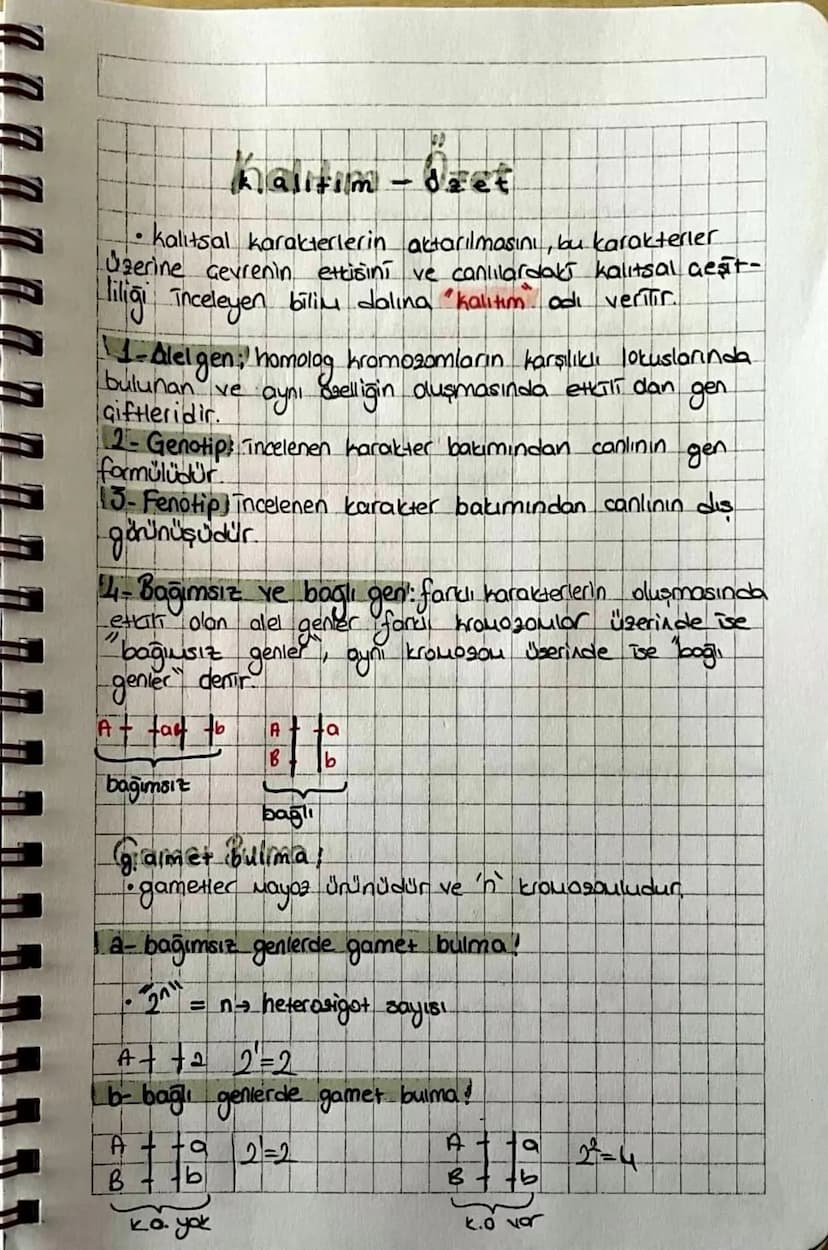 Kalıtım - Özet
• Kalıtsal karakterlerin aktarılmasını, bu karakterler
üzerine çevrenin etkisini ve canlılardaki kalıtsal çeşit-
liliği inceleyen bilim dalına "kalıtım" adı verilir.
1- Alel gen; homolog kromozomların karşılıklı lokuslarında
bulunan ve aynı özelliğin oluşmasında etkili olan gen
çiftleridir.
2- Genotip; incelenen karakter bakımından canlının gen
formülüdür.
3- Fenotip; incelenen karakter bakımından canlının dış
görünüşüdür.
4- Bağımsız ve bağlı gen: farklı karakterlerin oluşmasında
etkili olan alel genler farklı kromozomlar üzerinde ise
"bağımsız genler", aynı kromozom üzerinde ise "bağlı
genler" denir.
A a b A a
B b
bağımsız
bağlı
Gamet Bulma!
• gametler mayoz ürünüdür ve 'n' kromozomludur.
a- bağımsız genlerde gamet bulma!
• "2ⁿ" = n→ heterozigot sayısı
A a 2¹=2
b- bağlı genlerde gamet bulma!
A a 2¹=2 A a 2²=4
B b B b
K.O. yok K.O var